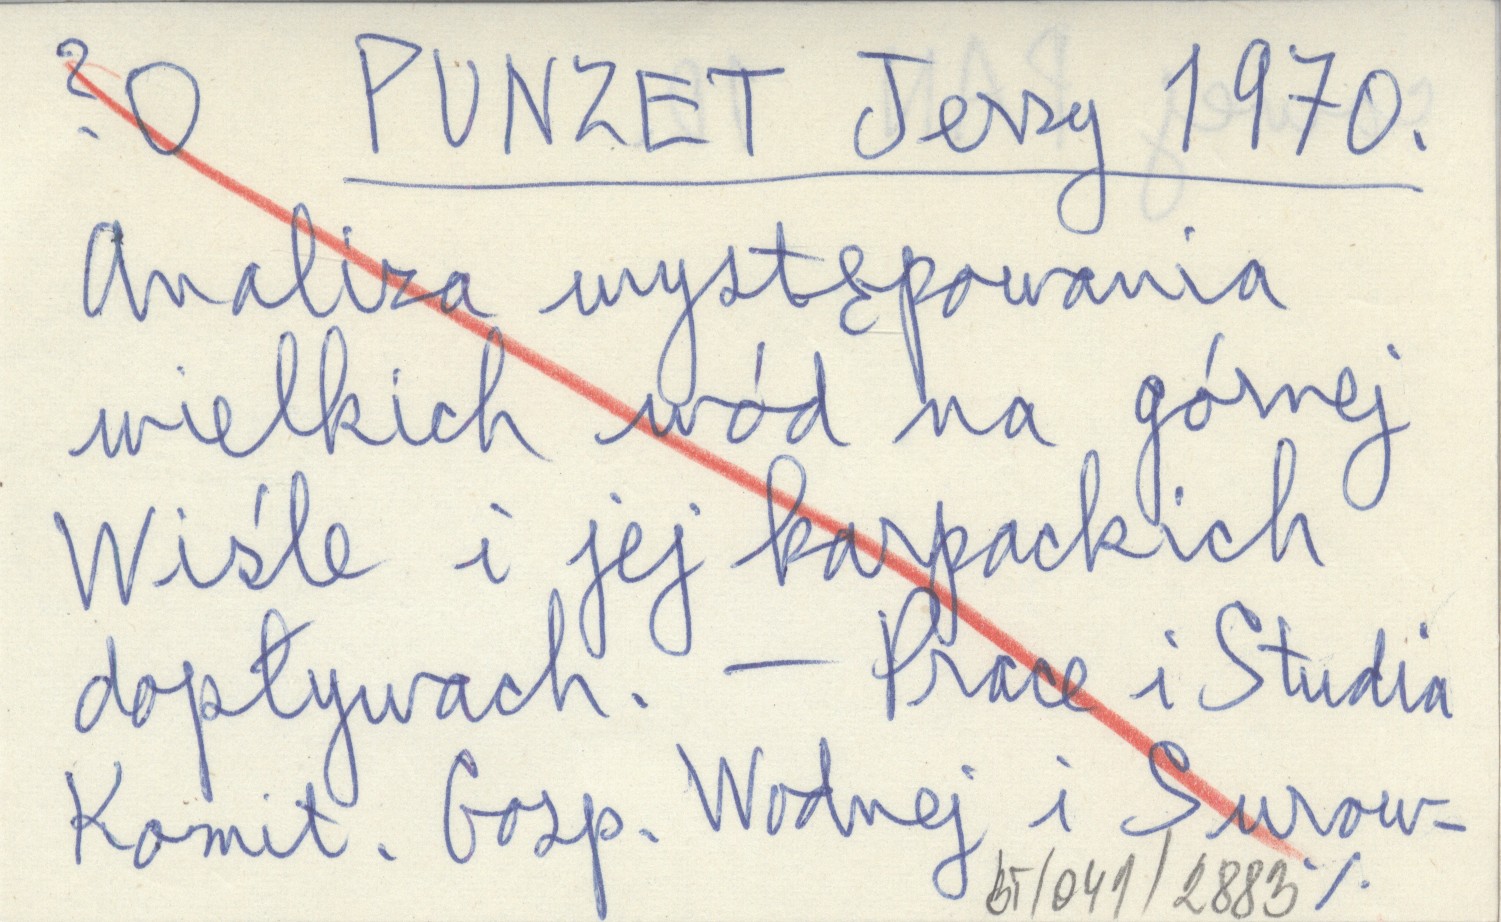 ? O PUNZET Jerzy 1970.
Analiza występowania
wielkich wód na górnej
Wiśle i jej karpackich
dopływach. — Prace i Studia
Komit. Gosp. Wodnej i Surow-
/041/2883 ./.